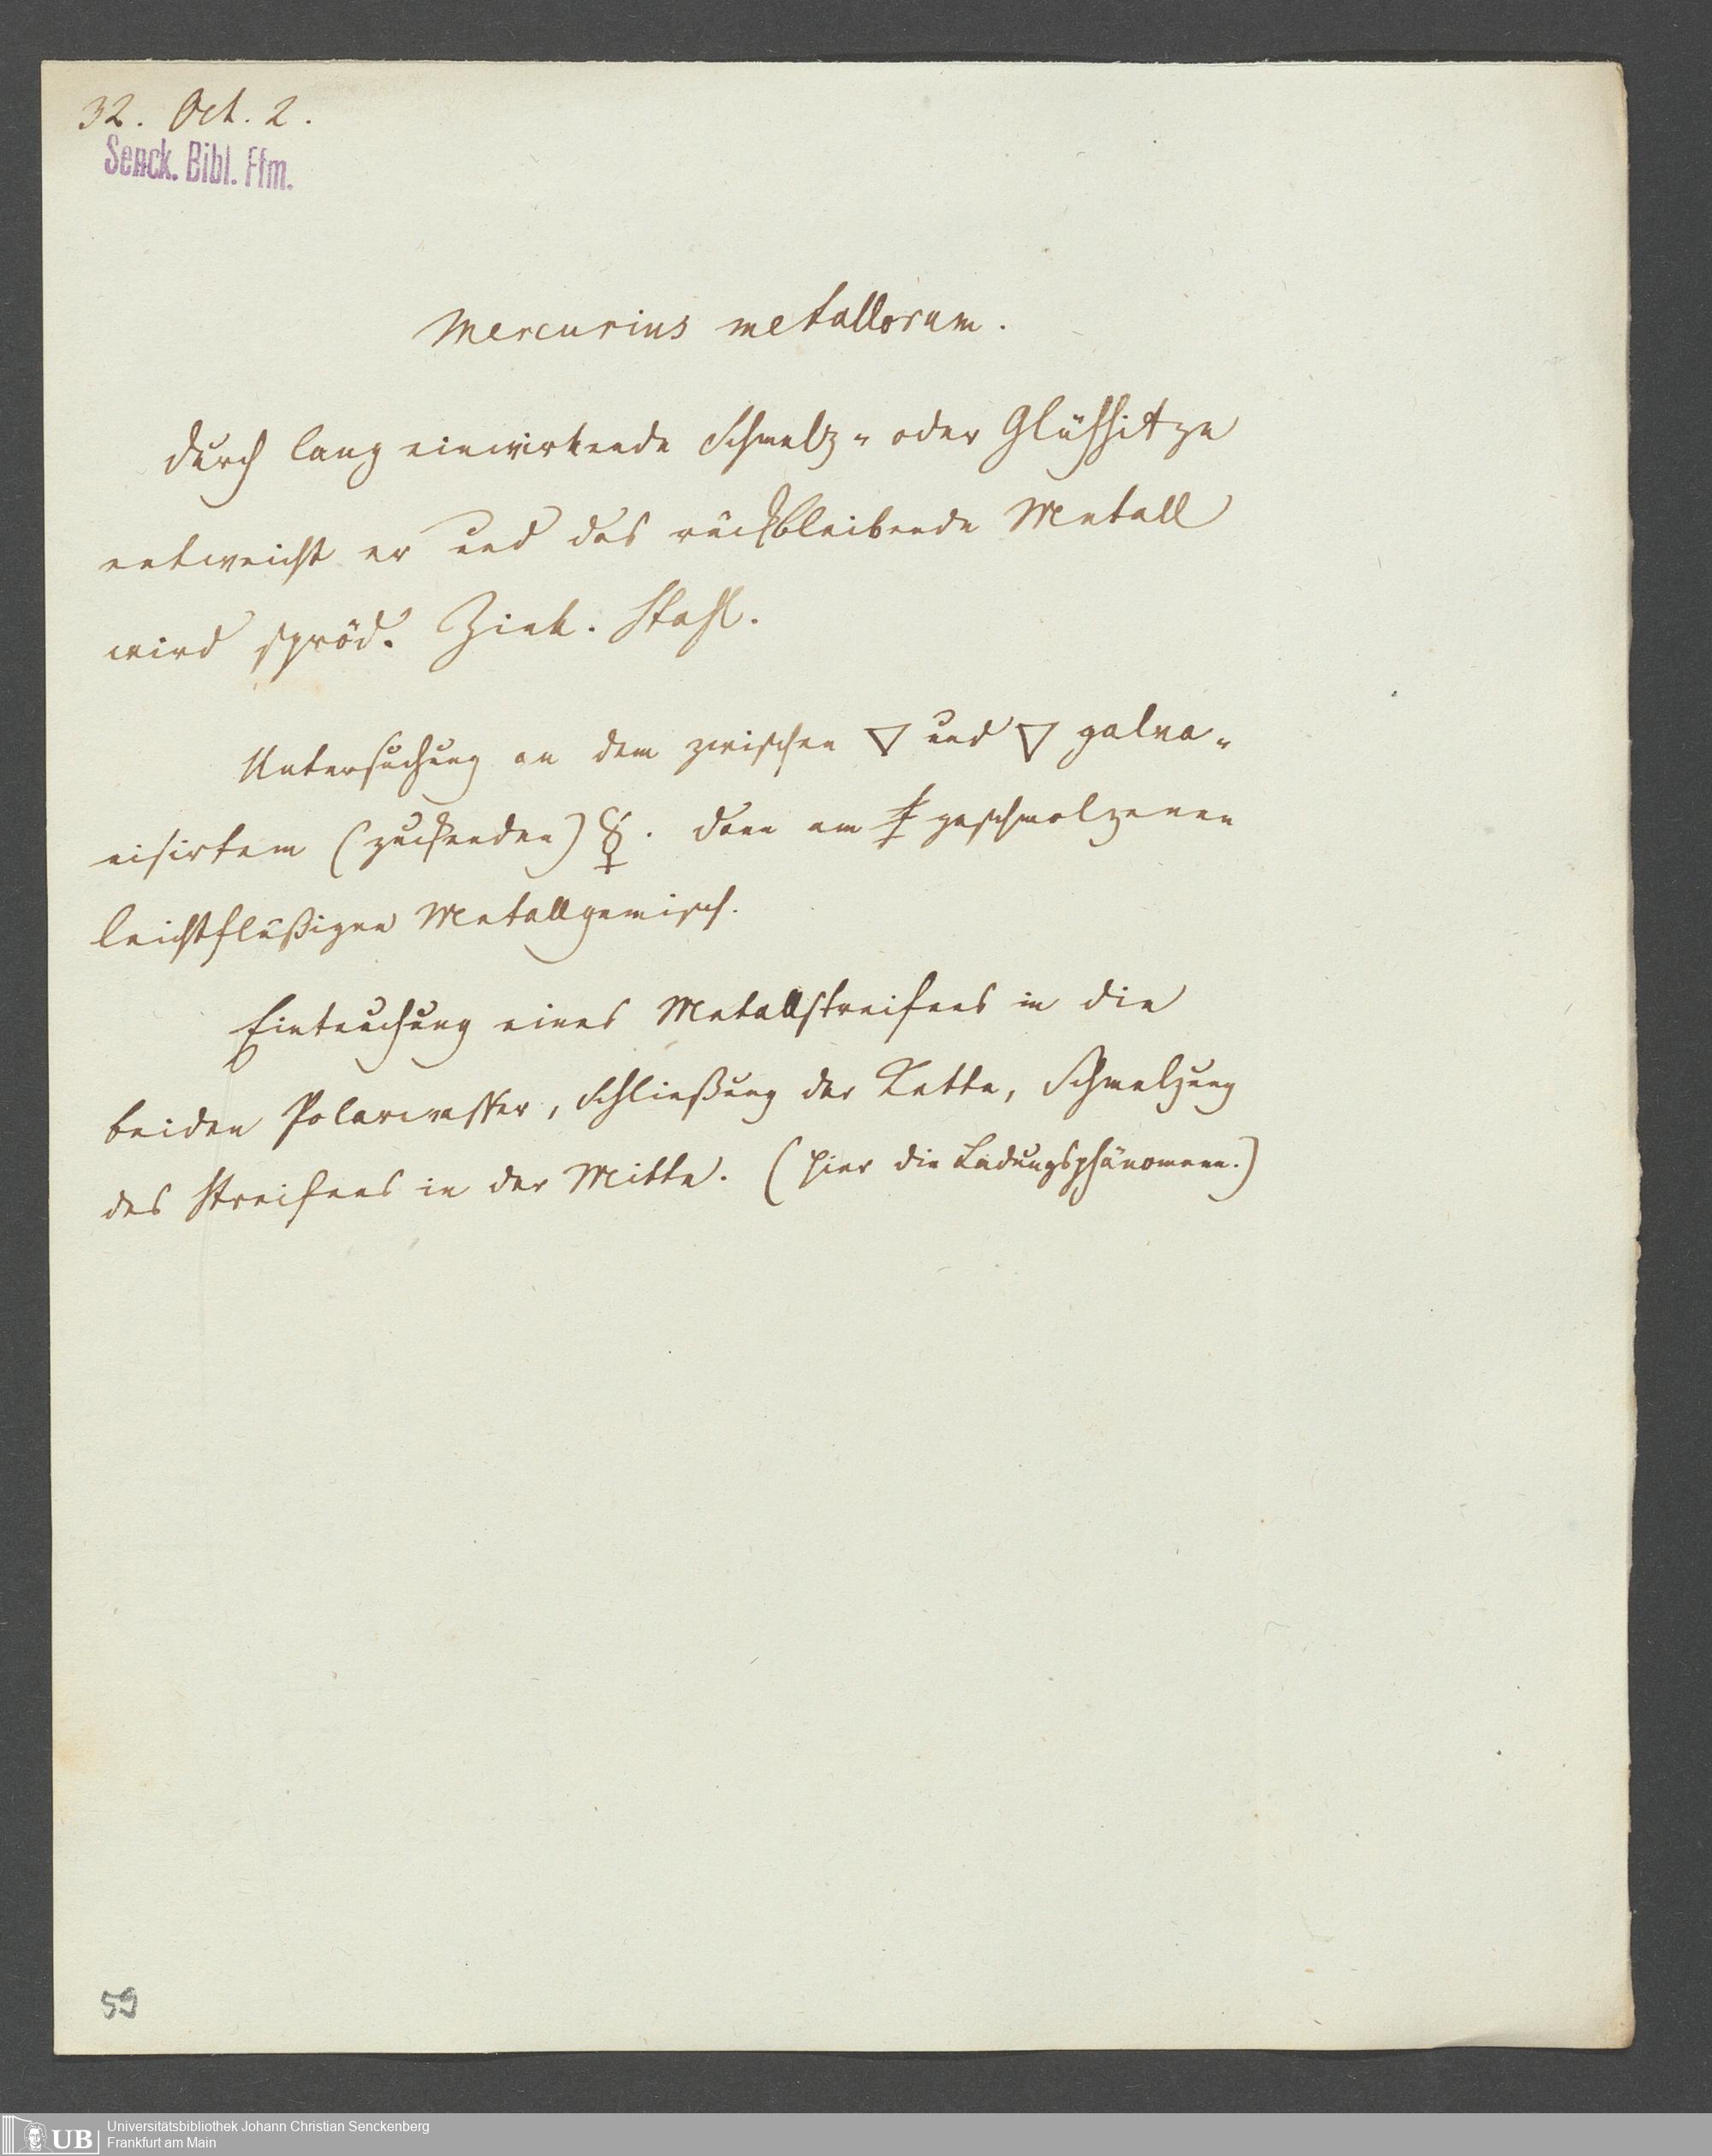 32. Oct. 2.
Senck. Bibl. Ffm.
Mercurius metallorum.
Durch lang einwirkende Schmelz- oder Glühhitze
entweicht er und das rückbleibende Metall
wird spröd. Zink. Stahl.
Untersuchung an dem zwischen 🜄 und 🜄 galva-
nisirtem (zuckenden) ☿. dann am geschmolzenen
leichtflüßigen Metallgemisch.
Eintauchung eines Metallstreifens in die
beiden Polarwasser, Schließung der Kette, Schmelzung
des Streifens in der Mitte. (hier die Ladungsphänomene.)
59
UB
Universitätsbibliothek Johann Christian Senckenberg
Frankfurt am Main